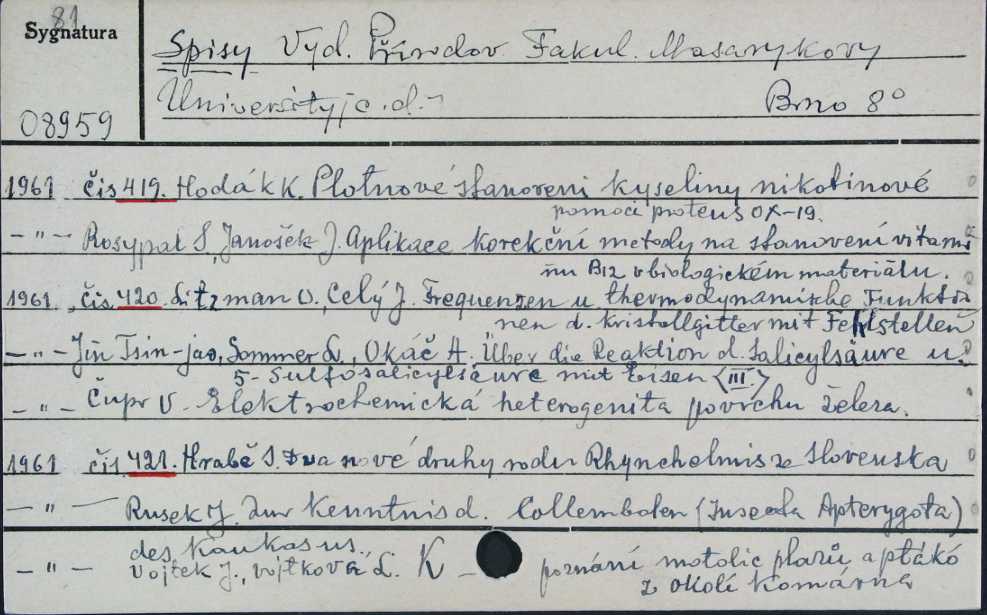 81
Sygnatura
08959
Spisy Vyd. Přírodov Fakul. Masarykovy
University j.c.d.
Brno 8°
1961 čis 419. Hodák K. Plotnové stanovení kyseliny nikotinové
pomocí proteus OX-19.
- " - Rosypal S, Janošek J. Aplikace korekční metody na stanovení vitami
nu B12 v biologickém materiálu.
1961 čis 420. Litzman O, Celý J. Frequenzen u. thermodynamische Funktio
nen d. Kristallgitter mit Fehlstellen
- " - Jin Tsin-jao, Sommer L., Okáč A. Über die Reaktion d. Salicylsäure u.
5-Sulfosalicylsäure mit Eisen (III.)
- " - Čupr V. Elektrochemická heterogenita povrchu železa.
1961 čis 421. Hrabě S. Dva nové druhy rodu Rhynchelmis ze Slovenska
- " - Rusek J. Zur Kenntnis d. Collembolen (Insecta Apterygota)
des Kaukasus.
- " - Vojtek J., Vojtková L. K poznání motolic plazů a ptáků
z okolí Komárna